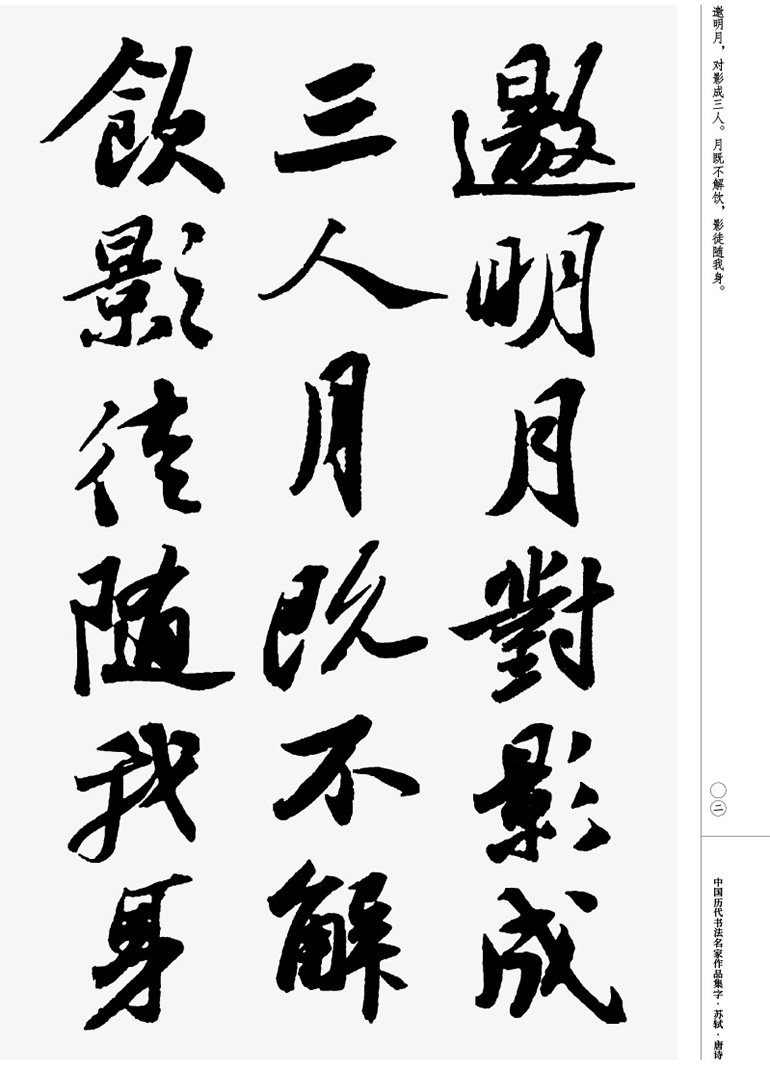 邀明月，对影成三人。月既不解饮，影徒随我身。
〇二
中国历代书法名家作品集字·苏轼·唐诗
邀明月對影成
三人月既不解
飲影徒随我身